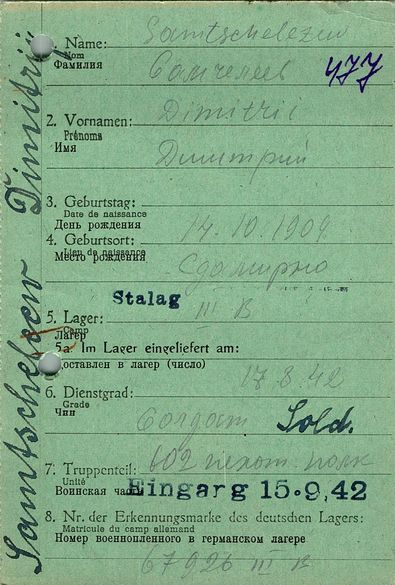 Samtscheleew Dimitrij
1. Name: Samtschelezew
Nom
Фамилия Самчелеев 477
2. Vornamen: Dimitri
Prénoms
Имя Димитрий
3. Geburtstag: 14.10.1909
Date de naissance
День рождения
4. Geburtsort:
Lieu de naissance
Место рождения
Stalag
5. Lager: III B
Camp
Лагерь
5a. Im Lager eingeliefert am:
Доставлен в лагерь (число) 17.8.42
6. Dienstgrad:
Grade
Чин Солдат Sold.
7. Truppenteil: 602 пехот. полк
Unité
Воинская часть Eingang 15.9.42
8. Nr. der Erkennungsmarke des deutschen Lagers:
Matricule du camp allemand
Номер военнопленного в германском лагере
67926 III B